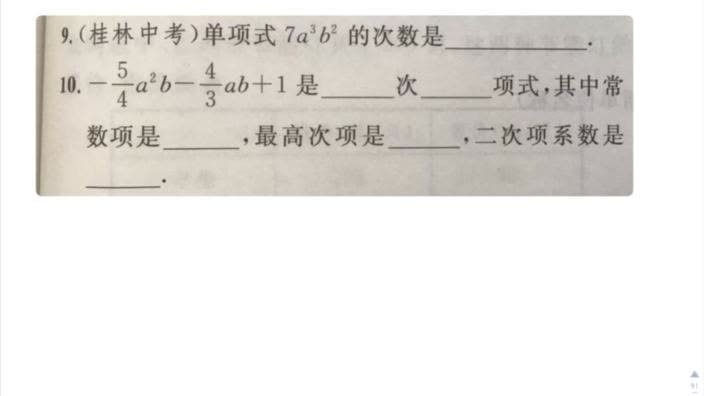 9.(桂林中考)单项式 7a³b² 的次数是________.
10. -5/4a²b-4/3ab+1 是______次______项式,其中常
数项是______,最高次项是______,二次项系数是
______.